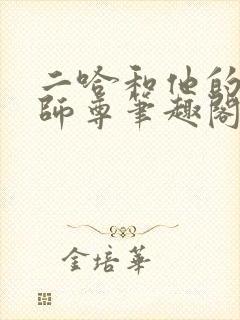 二哈和他的
師尊筆趣閣
金培華